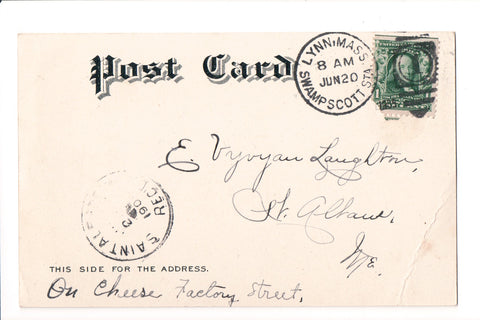 Post Card
LYNN, MASS.
8 AM
JUN 20
SWAMPSCOTT STA.
E. Vyvyan Laughton,
St. Albans,
Me.
REC'D
190
SAINT AL
THIS SIDE FOR THE ADDRESS.
On Cheese Factory Street,